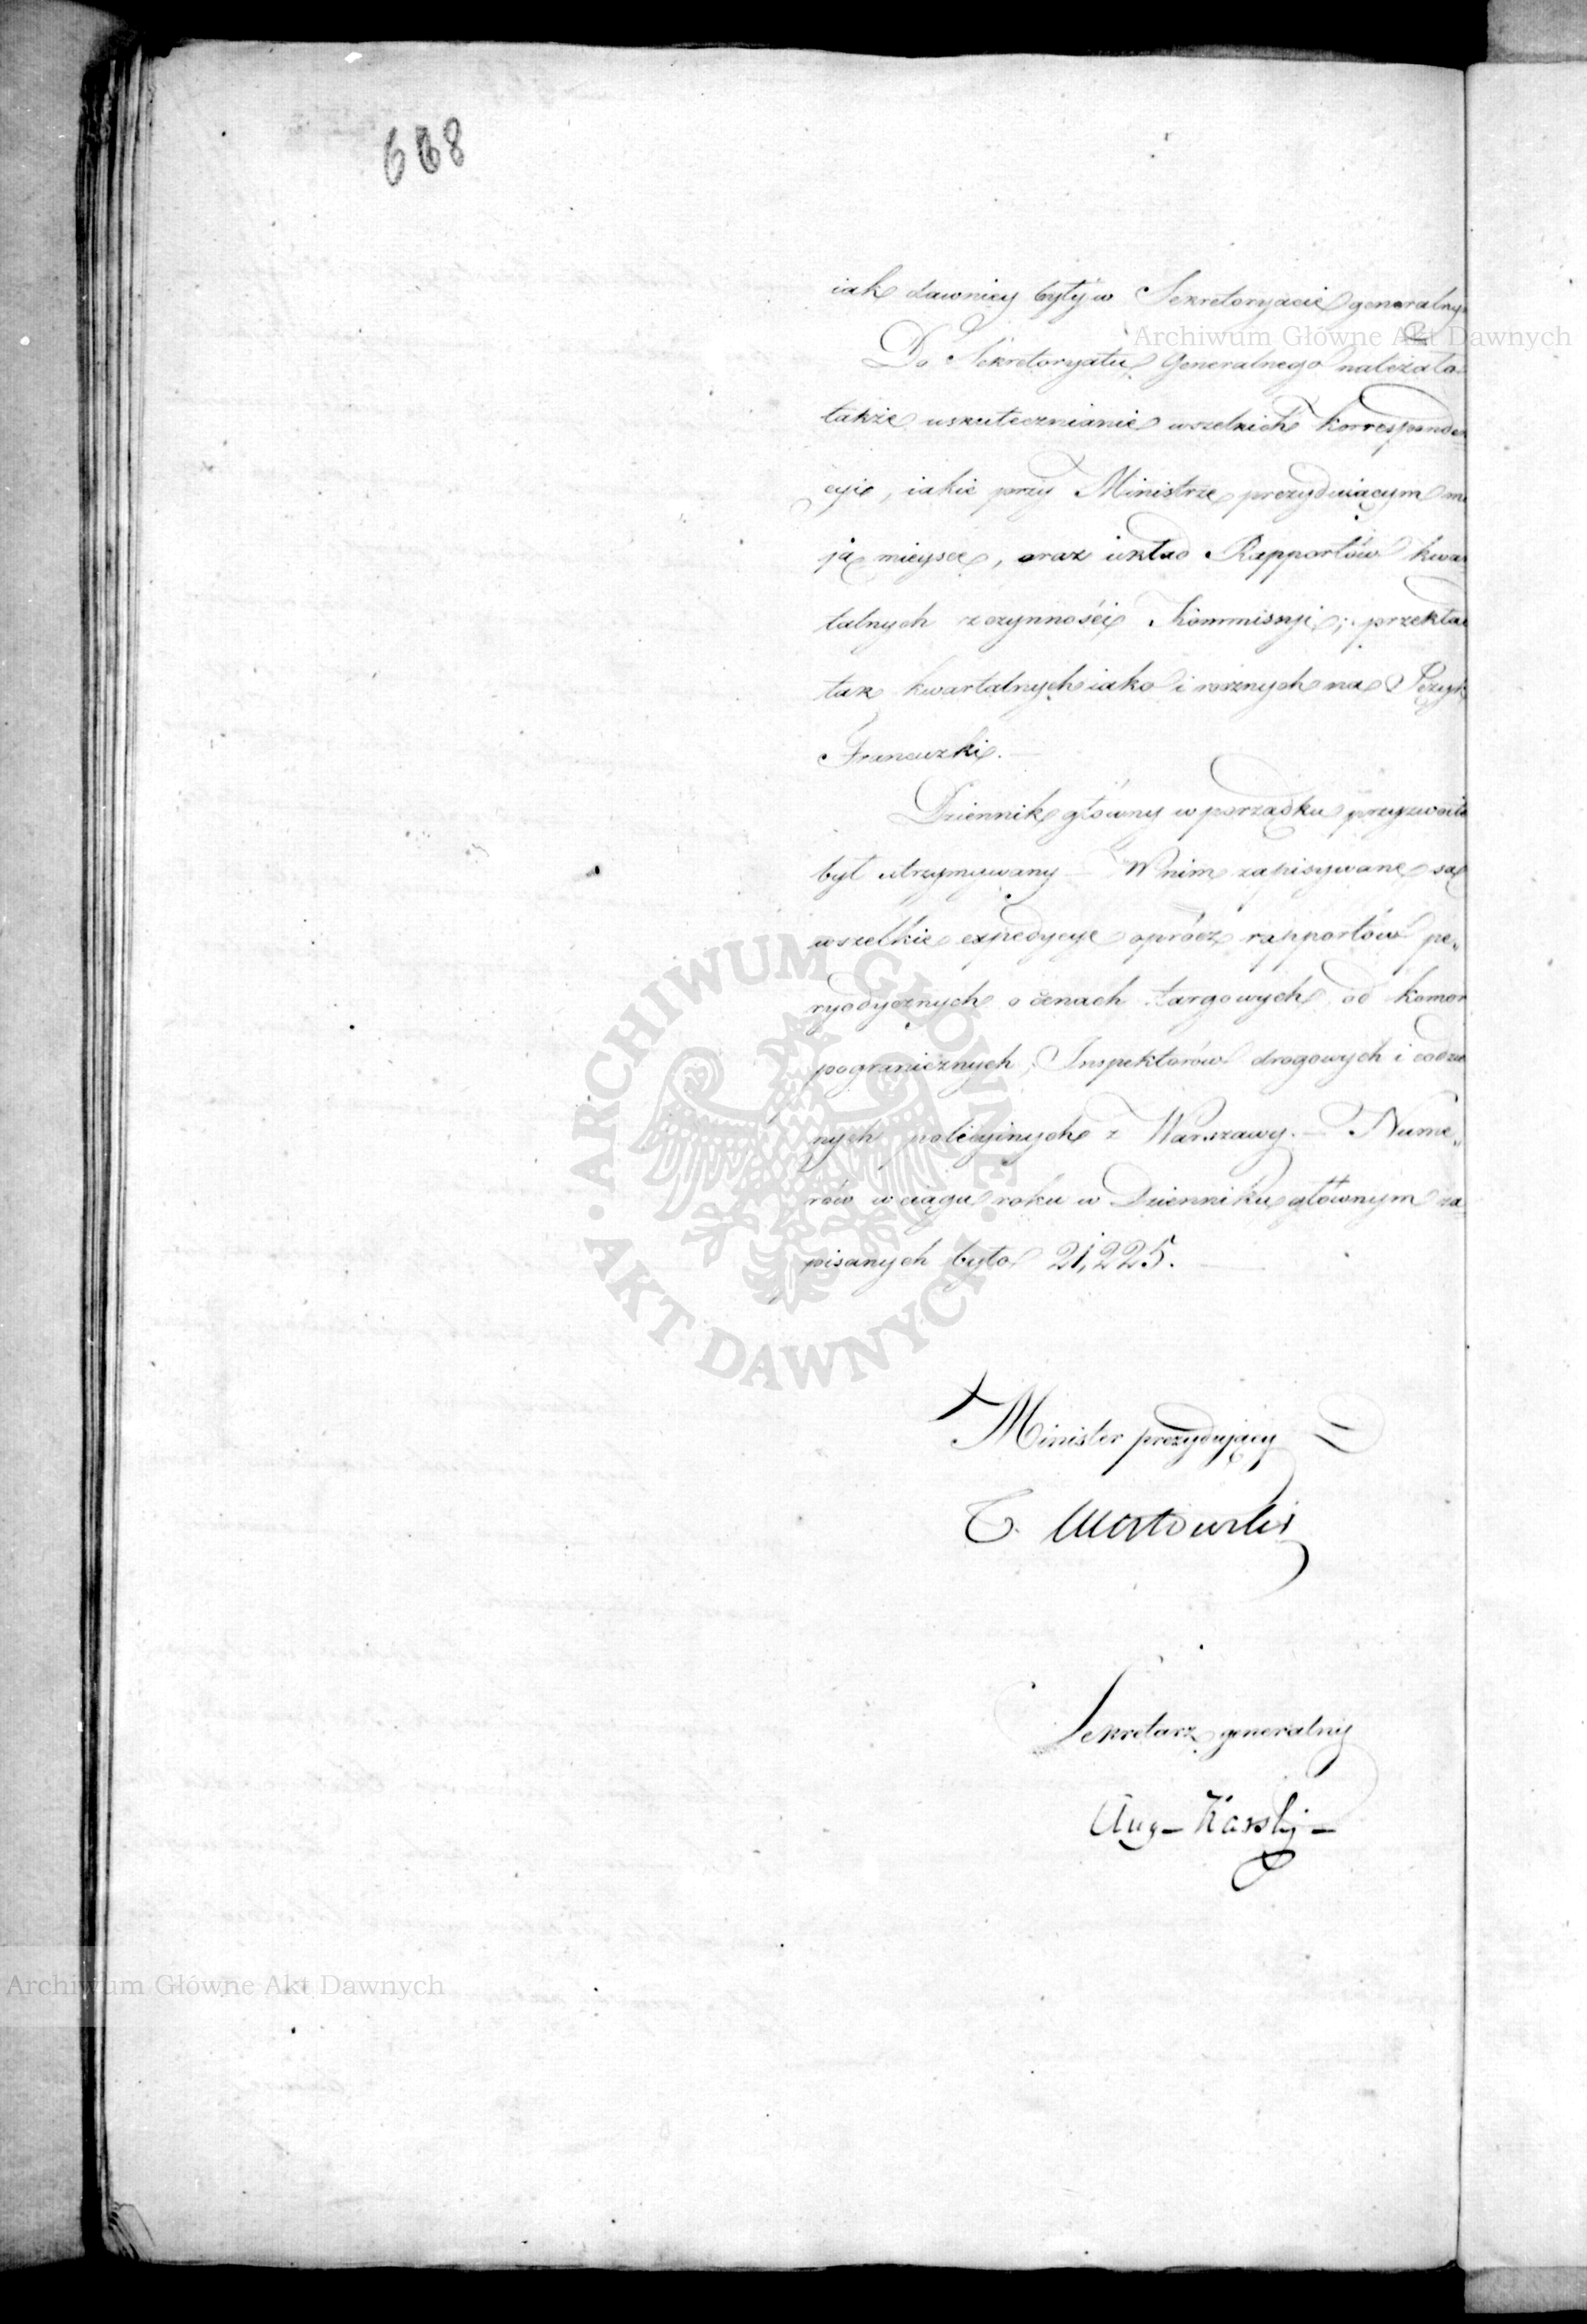 668
iak dawniey były w Sekretoryacie generalny
Do Sekretoryatu Generalnego należało
także uskutecznianie wszelkich korresponden
cyi, iakie przy Ministrze prezyduiącym ma
ją mieysce, oraz układ Rapportów kwar
talnych z czynności Kommissyi; przekład
tak kwartalnych iako i rocznych na Język
Francuzki.
Dziennik główny w porządku przyzwoitem
był utrzymywany – W nim zapisywane są
wszelkie expedycye oprócz rapportów pe„
ryodycznych o cenach targowych, od komor
pogranicznych, Inspektorów drogowych i codzie
nych policyinych z Warszawy. – Nume„
rów w ciągu roku w Dzienniku głównym za
pisanych było 21,225.
Minister prezydujący
T. Mostowski
Sekretarz generalny
Aug. Karski
Archiwum Główne Akt Dawnych
ARCHIWUM GŁÓWNE AKT DAWNYCH
Archiwum Główne Akt Dawnych